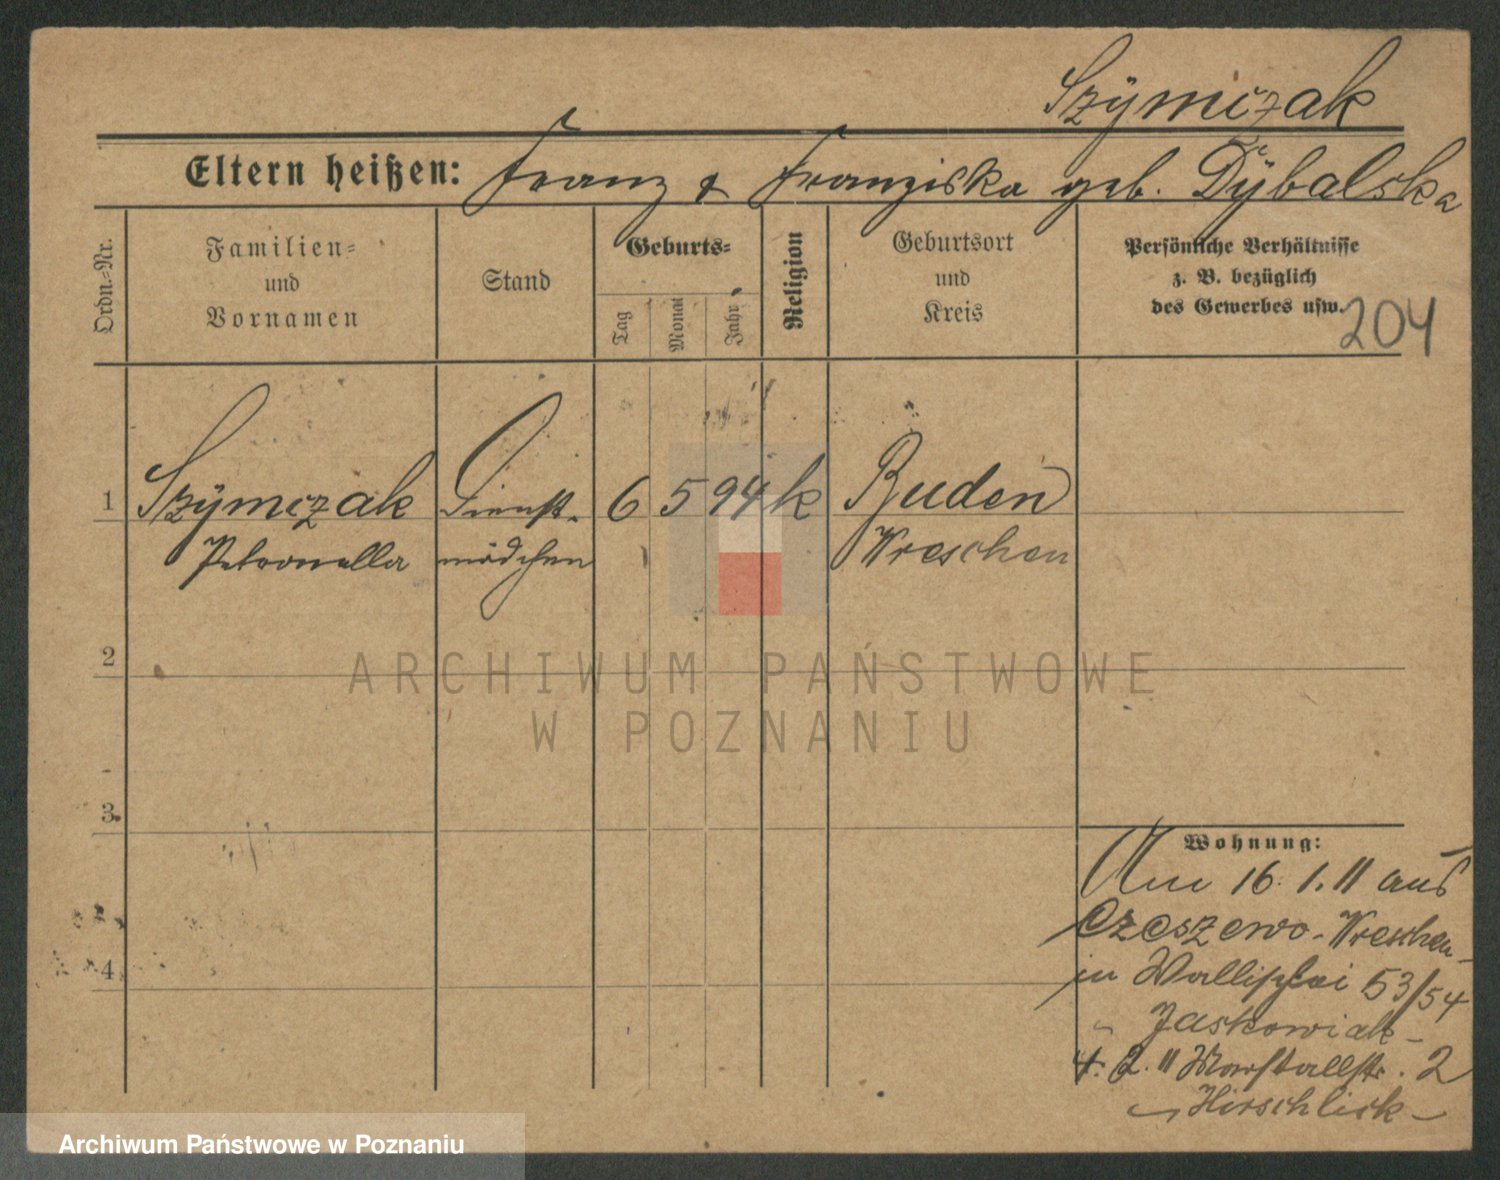 Szÿmczak
Eltern heißen: Franz & Franziska geb. Dÿbalska
Ordn.=Nr.
Familien=
und
Vornamen
Stand
Geburts=
Tag
Monat
Jahr
Religion
Geburtsort
und
Kreis
Persönliche Verhältnisse
z. B. bezüglich
des Gewerbes usw.
204
1 Szÿmczak Dienst- 6 5 94 k Buden
Petronella mädchen Wreschen
2
3
4
Wohnung:
Am 16. 1. 11 aus
Czeszewo-Wreschen
in Wallischei 53/54
Jaskowiak
4. 2. 11 Marstallstr. 2
ARCHIWUM PAŃSTWOWE
W POZNANIU
Archiwum Państwowe w Poznaniu